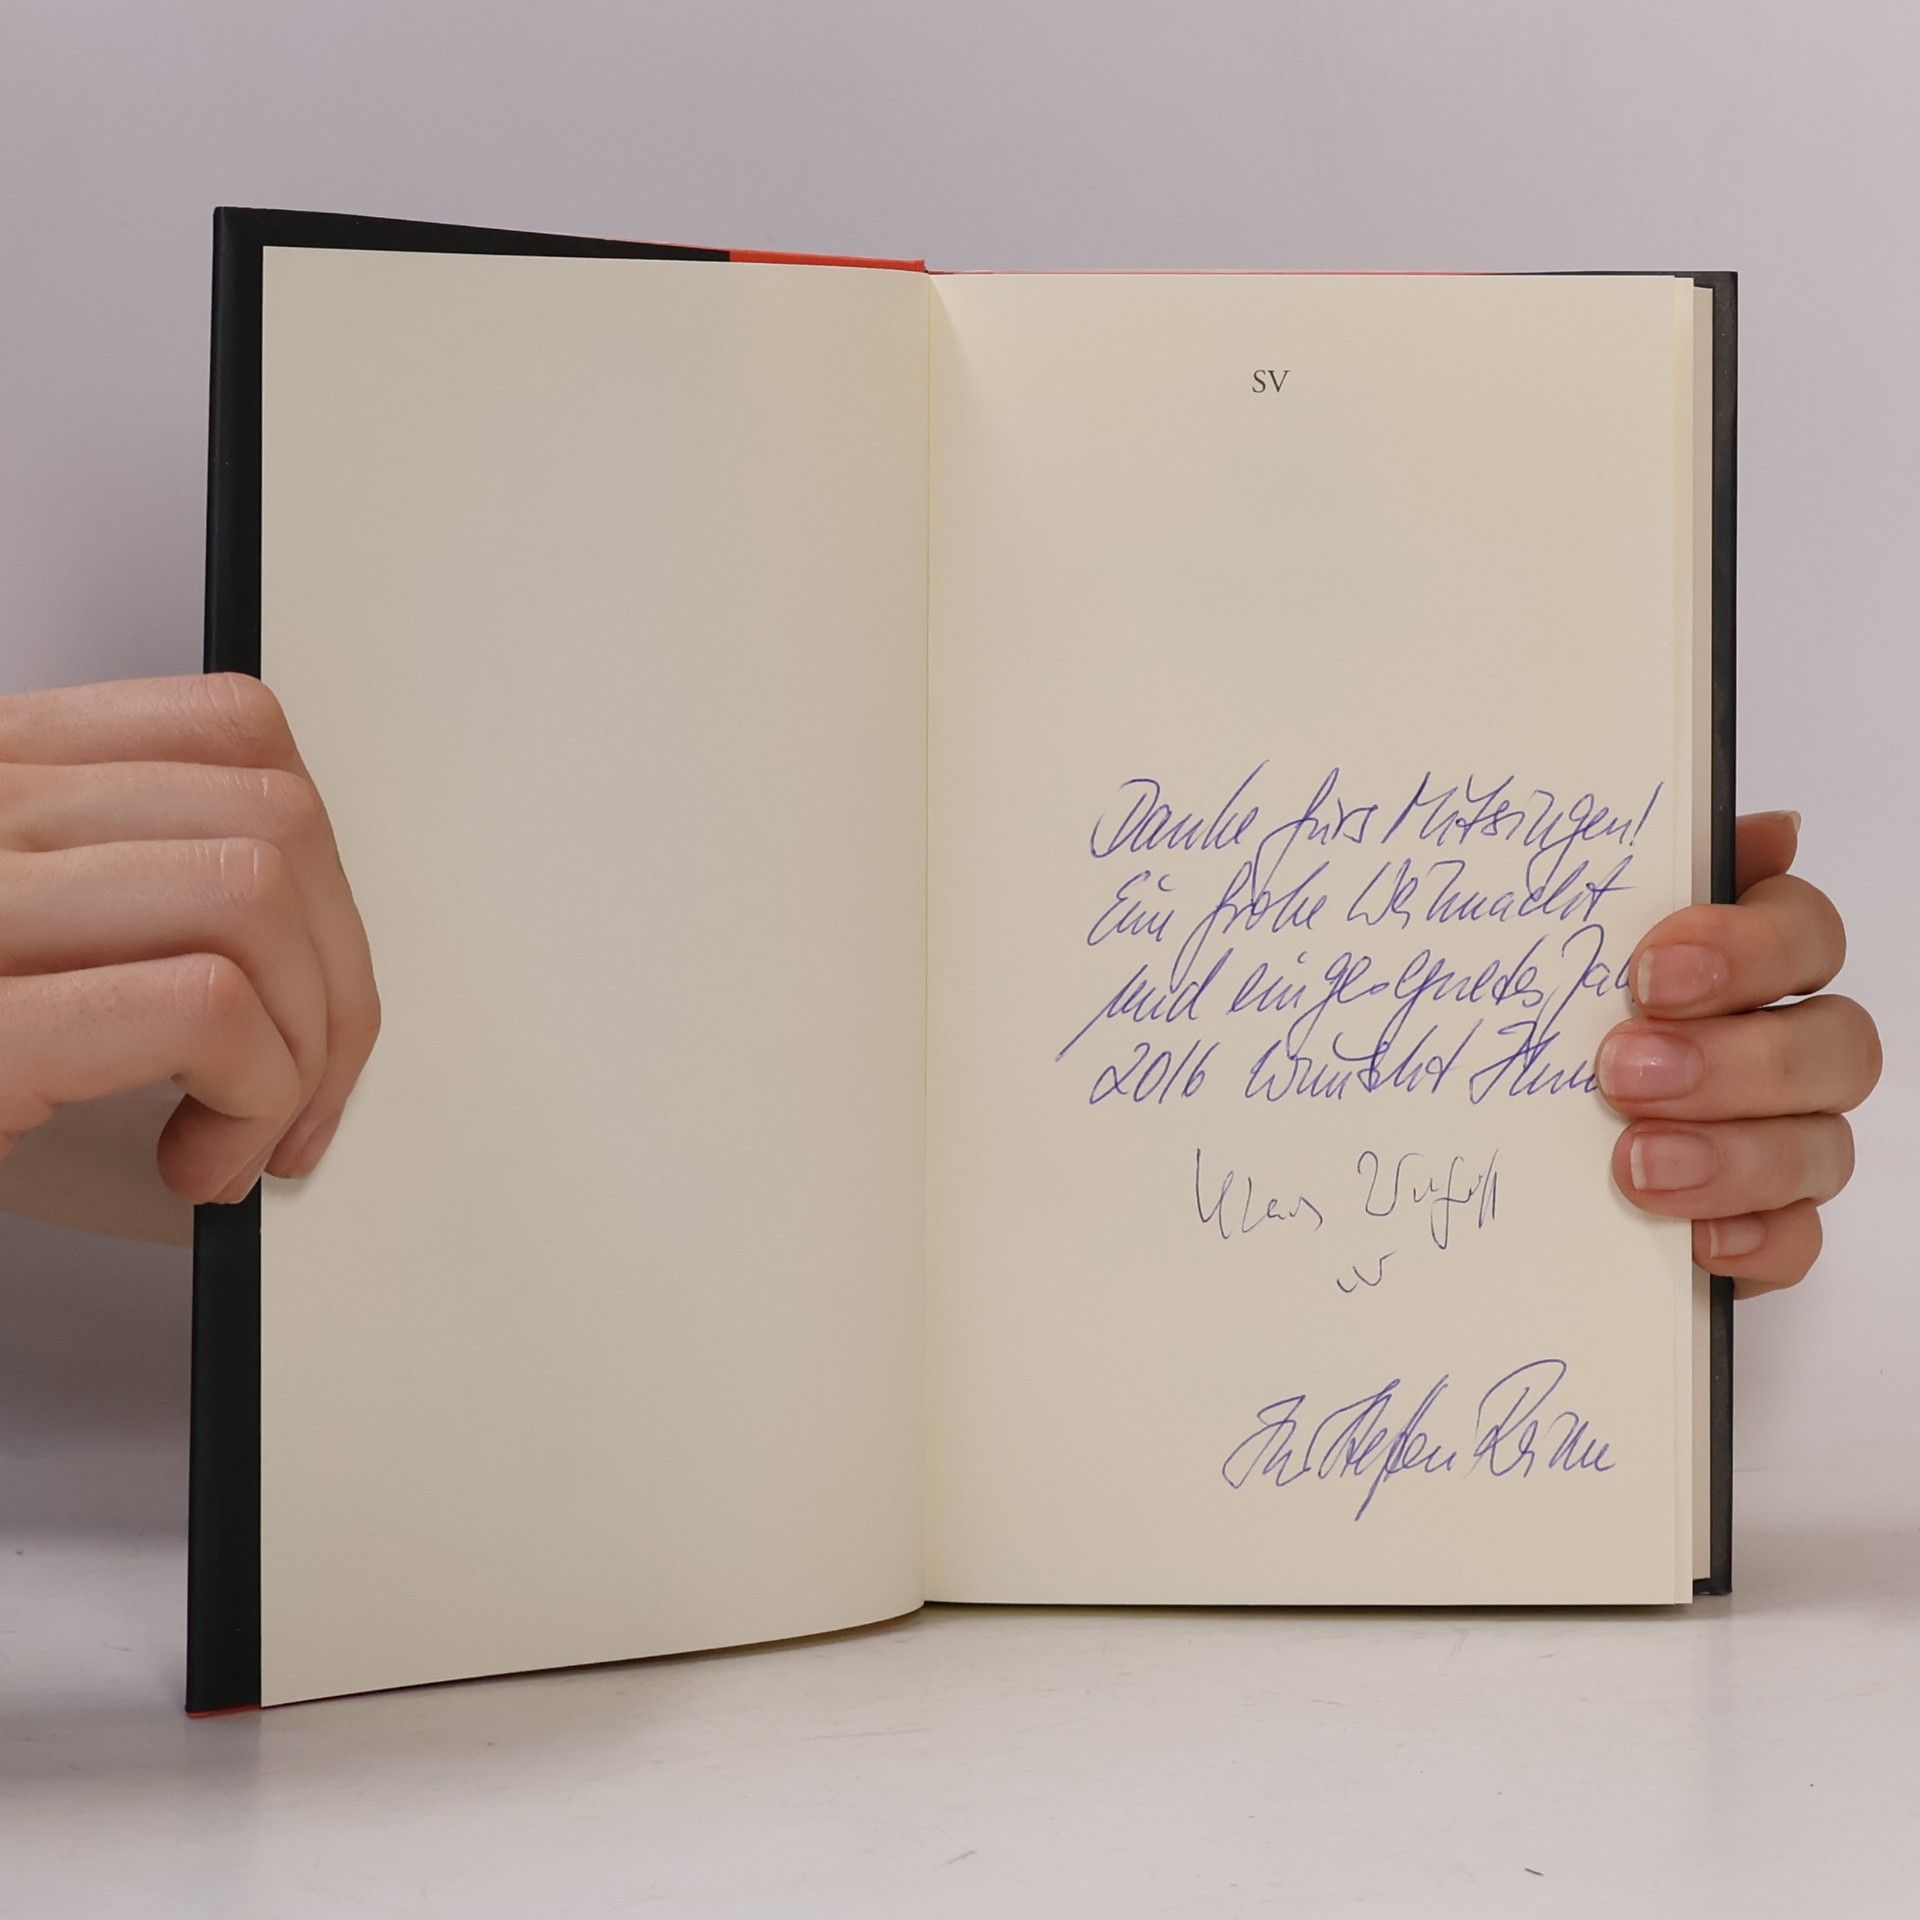 SV
Danke fürs Mitsingen!
Eine frohe Weihnacht
und ein gesegnetes Jah
2016 wünscht Ihne
Klaus
Ihr Steffen